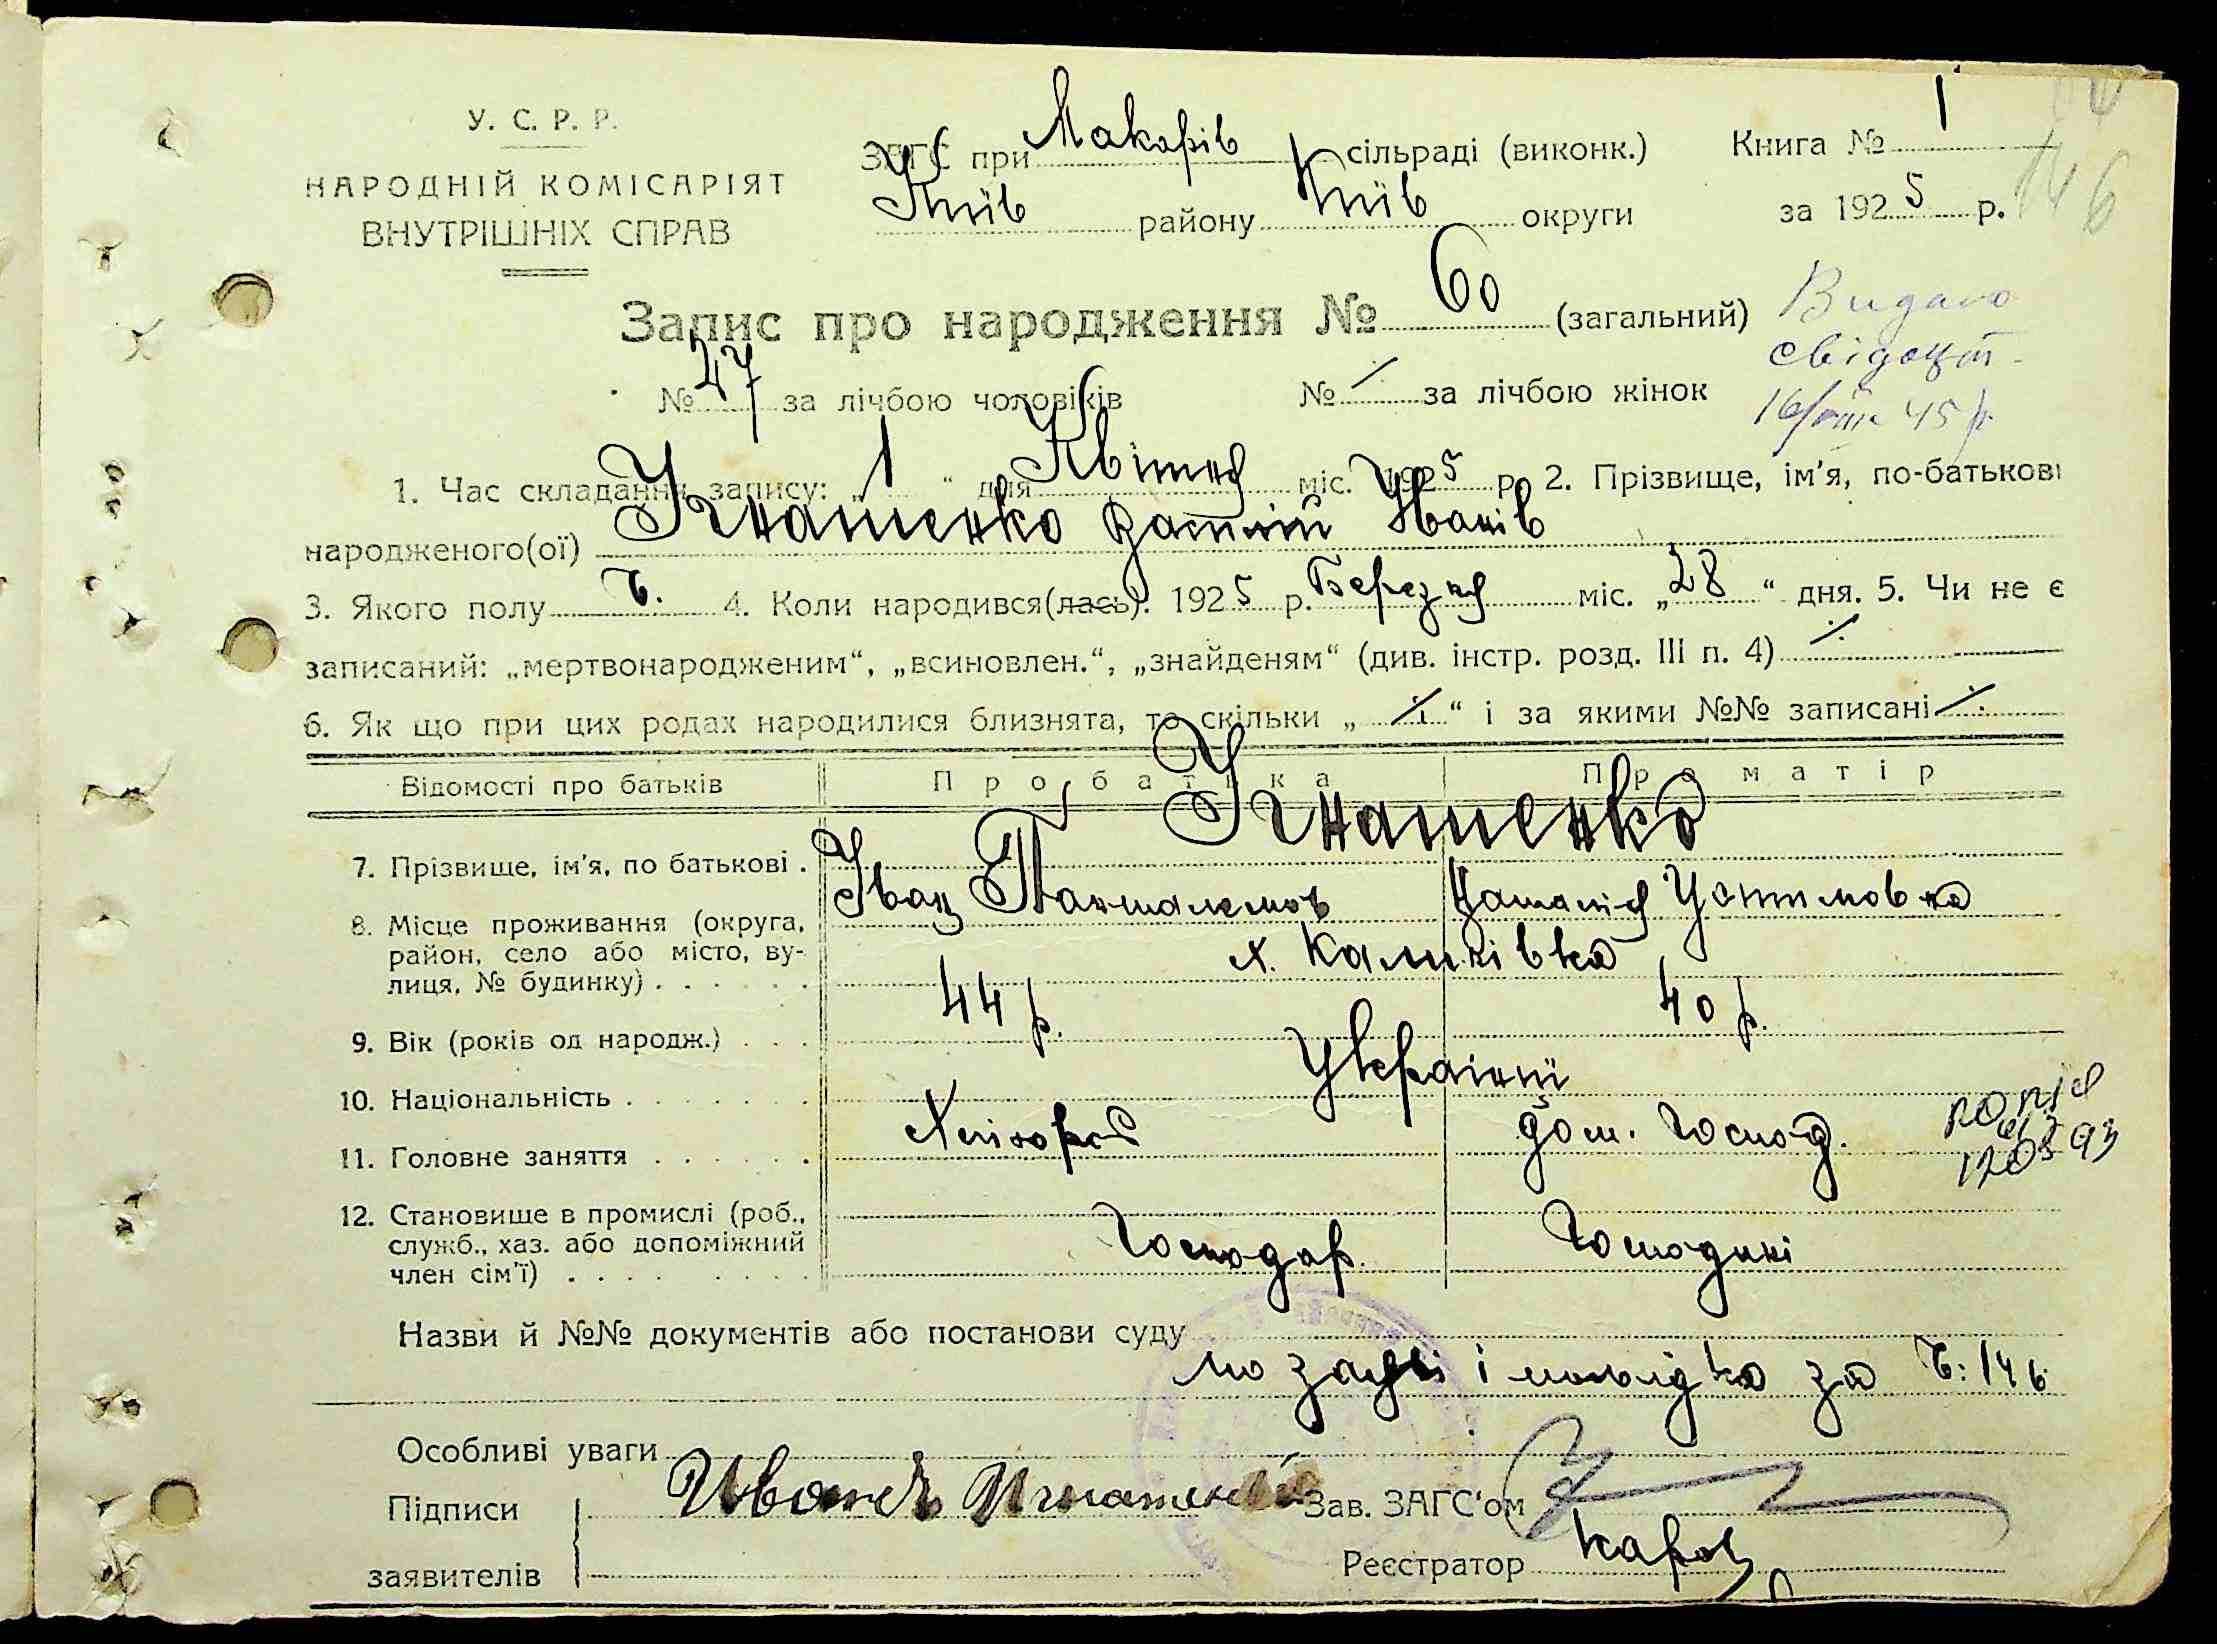 У. С. Р. Р.
НАРОДНІЙ КОМІСАРІЯТ
ВНУТРІШНІХ СПРАВ
ЗАГС при Макарів сільраді (виконк.)
Київ району Київ округи
Книга № 1
за 1925 р.
146
Запис про народження № 60 (загальний)
Видано
свідоцт
№ 47 за лічбою чоловіків № /. за лічбою жінок
45 р
1. Час складання запису: „ 1 “ дня Квітня міс. 1925 р. 2. Прізвище, ім'я, по-батькові
народженого(ої) Ігнатенко Іванів
3. Якого полу Ч. 4. Коли народився(лась). 1925 р. Березня міс. „ 28 “ дня. 5. Чи не є
записаний: „мертвонародженим“, „всиновлен.“, „знайденям“ (див. інстр. розд. III п. 4) ·/.
6. Як що при цих родах народилися близнята, то скільки „ ·/. “ і за якими №№ записані ·/.
Відомості про батьків
Про батька
Про матір
Ігнатенко
7. Прізвище, ім'я, по батькові .
Іван Панталемов
Наталія Устимовна
8. Місце проживання (округа, район, село або місто, вулиця, № будинку) . . . . . .
х. Калинівка
9. Вік (років од народж.) . . .
44 р.
40 р.
10. Національність . . . . . . .
Українці
11. Головне заняття . . . . . .
Хлібороб
дом. господ.
копія
12. Становище в промислі (роб., служб., хаз. або допоміжний член сім'ї) . . . . . . . .
Господар.
Господині
Назви й №№ документів або постанови суду
по заяві і довідка за Ч: 146
Особливі уваги
Підписи
заявителів
Иванъ Игнатенко
Зав. ЗАГС‘ом
Реєстратор